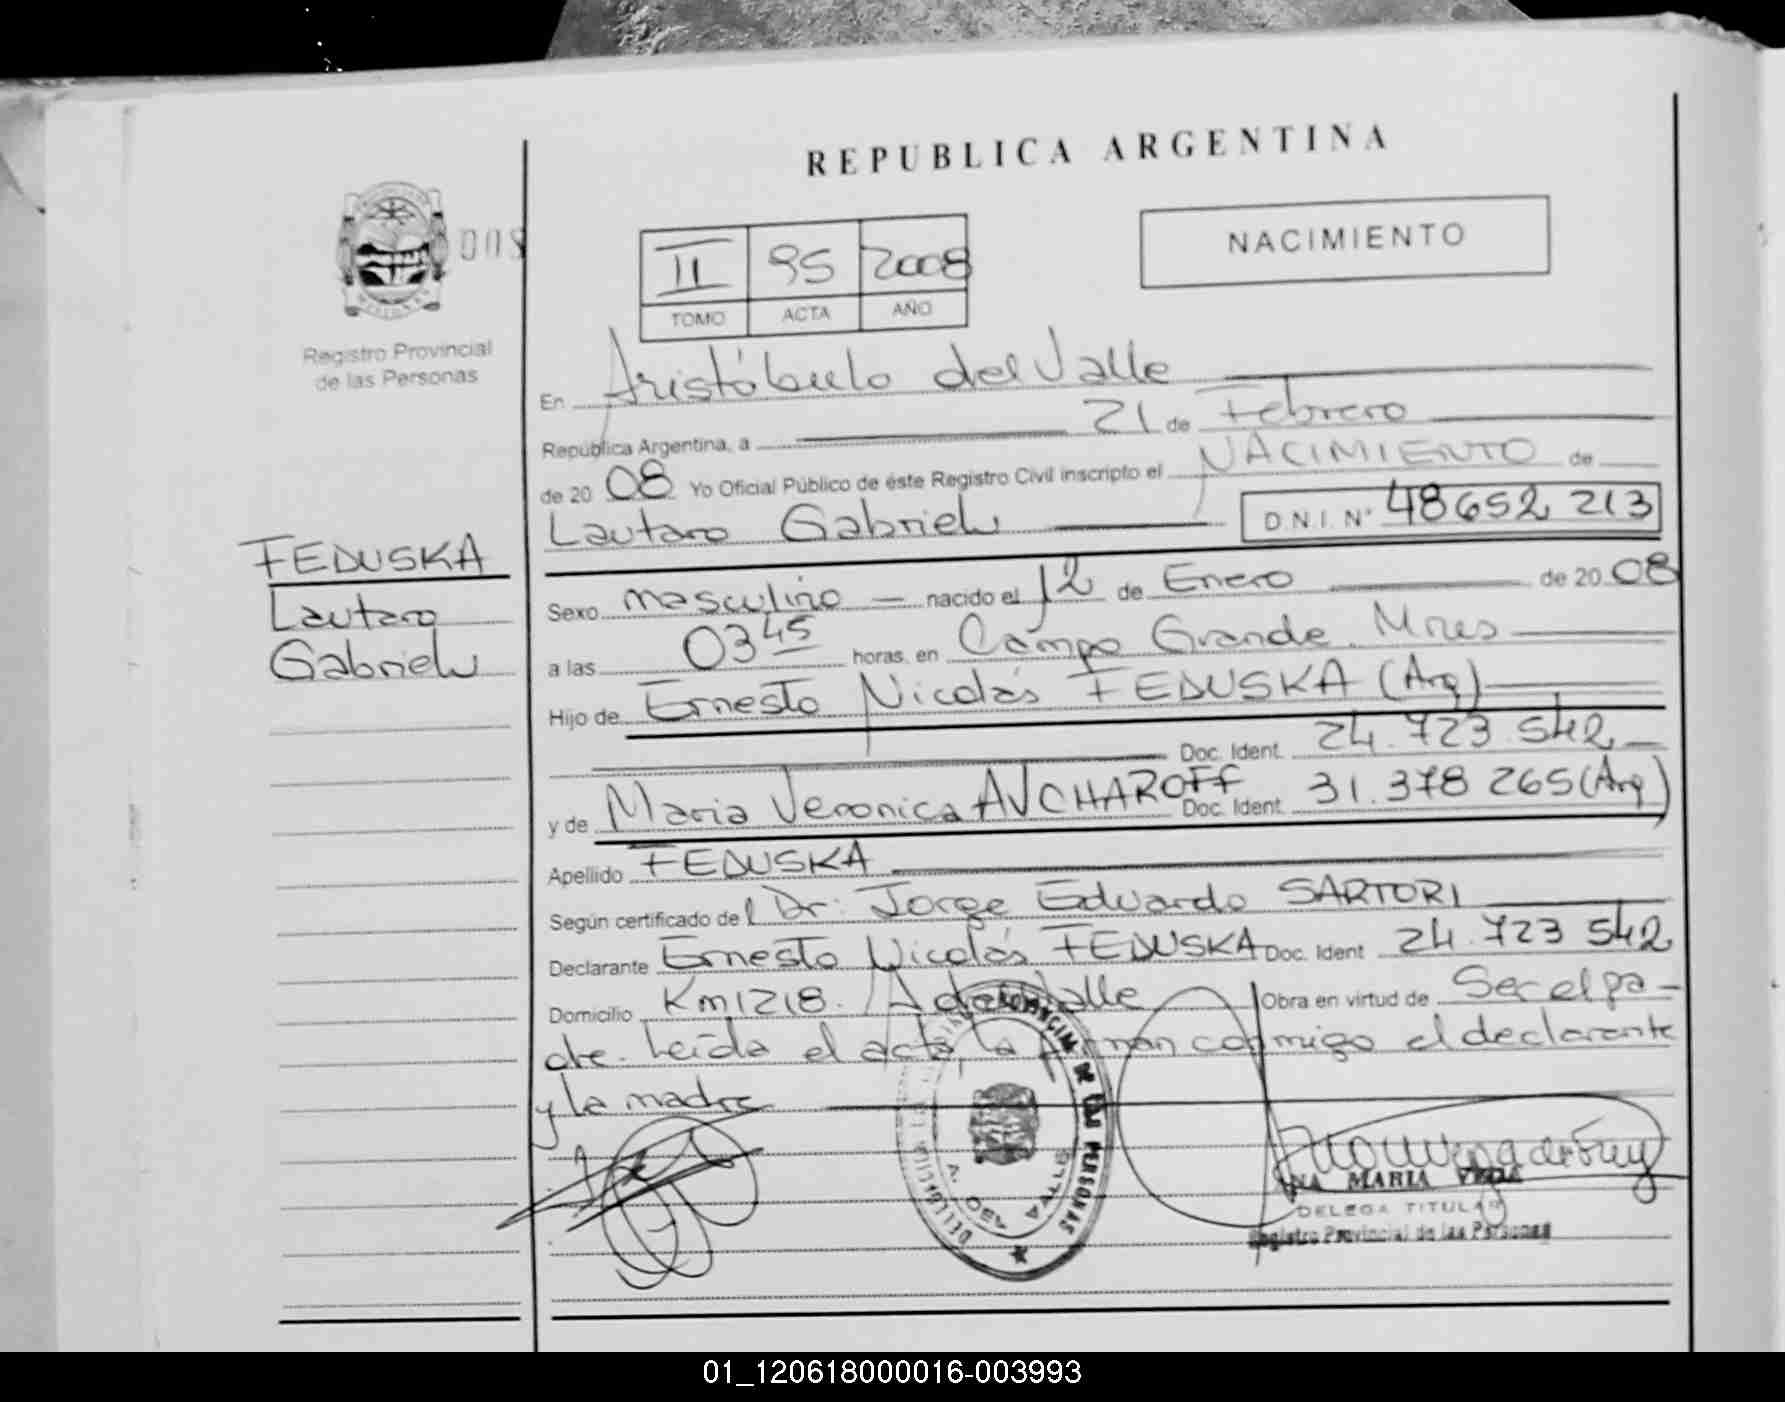 REPUBLICA ARGENTINA
NACIMIENTO
II 95 2008
TOMO ACTA AÑO
Registro Provincial
de las Personas
En Aristóbulo del Valle
República Argentina, a 21 de Febrero
de 20 08 Yo Oficial Público de éste Registro Civil inscripto el NACIMIENTO de
Lautaro Gabriel D.N.I. N° 48652 213
FEDUSKA
Lautaro
Gabriel
Sexo masculino nacido el 12 de Enero de 20 08
a las 03 45 horas, en Campo Grande. Mnes
Hijo de Ernesto Nicolás FEDUSKA (Arg)
Doc. Ident. 24.723.542
y de Maria Veronica AVCHAROFF Doc. Ident. 31.378 265 (Arg)
Apellido FEDUSKA
Según certificado del Dr. Jorge Eduardo SARTORI
Declarante Ernesto Nicolás FEDUSKA Doc. Ident 24.723 542
Domicilio Km 1218. A del Valle Obra en virtud de Ser el pa-
dre. Leída el acta, la firman conmigo el declarante
y la madre
PROVINCIAL DE LAS PERSONAS
A. DEL VALLE
ANA MARIA
DELEGA TITULAR
Registro Provincial de las Personas
01_120618000016-003993